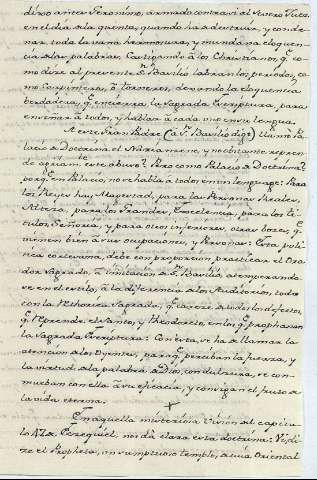 dixo a nro Geronimo, armado contra vi al Severo Juez,
en el dia de la quenta, quando ha de destruir, y conde-
nar, toda la vana hermosura, y mundana eloquen-
cia de las palabras, Castigando à los Christianos, qe
como dize al presente Sn Basilio labran los periodos, co-
mo Carpinteros, à torneros, dexando la eloquencia
verdadera, qe encierra, la Sagrada Escriptura, para
enseñar à todos, y hablar à cada uno en su lengua.
A este Gran Padre (à Sn Basilio digo) llamò Pa-
lacio de Doctrina el Nazianzeno, y no obstante repren-
de agriamte este abuso? Pero como Palacio de Doctrina?
porqe en Palacio, no se habla à todos, en un lenguage: Para
los Reyes hay, Magestad, para las Personas Reales,
Alteza, para los Grandes, Excelencia, para los ti-
tulos, Señoria, y para otros inferiores, otras vozes, qe
vienen bien à sus ocupaciones, y Personas: Esta poli-
tica cortesana, debe con proporcion, practicar el Ora-
dor Sagrado, à imitacion de Sn Basilio, atemperando-
se en el estilo, à la diferencia de los Auditorios, todo
con la Rethorica Sagrada, qe carece de todos los defectos,
qe reprende el Santo, y Theodoreto, en los qe prophanan
la Sagrada Escriptura: Con esta, se ha de llamar la
atencion de los Oyentes, para qe perciban la fuerza, y
la virtud de la palabra de Dios, con dulzura, se con-
muevan con ella à su eficacia, y consigan el fruto de
la vida eterna.
En aquella misteriosa Vision del capitu-
lo 47 de Ezequiel, nos dà clara esta doctrina: Vi, di-
ze el Propheta, un sumptuoso templo, de cuia Oriental